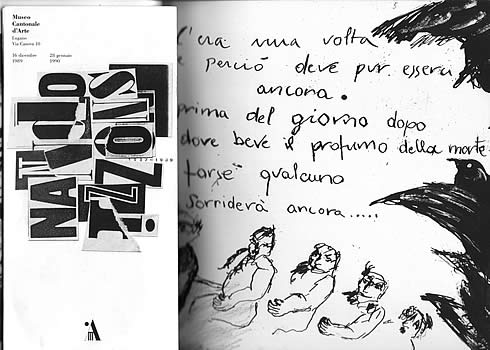 Museo
Cantonale
d'Arte
Lugano
Via Canova 10
16 dicembre
1989
28 gennaio
1990
NATALIO
TIZZONIS
C'era una volta
e perciò deve pur esserci
ancora.
prima del giorno dopo
dove beve il profumo della morte
forse qualcuno
sorriderà ancora.....